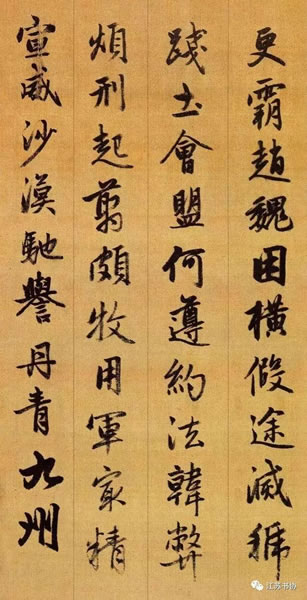 更霸趙魏困橫假途滅虢
踐土會盟何遵約法韓弊
煩刑起翦頗牧用軍宼精
宣威沙漠馳譽丹青九州
江苏书协